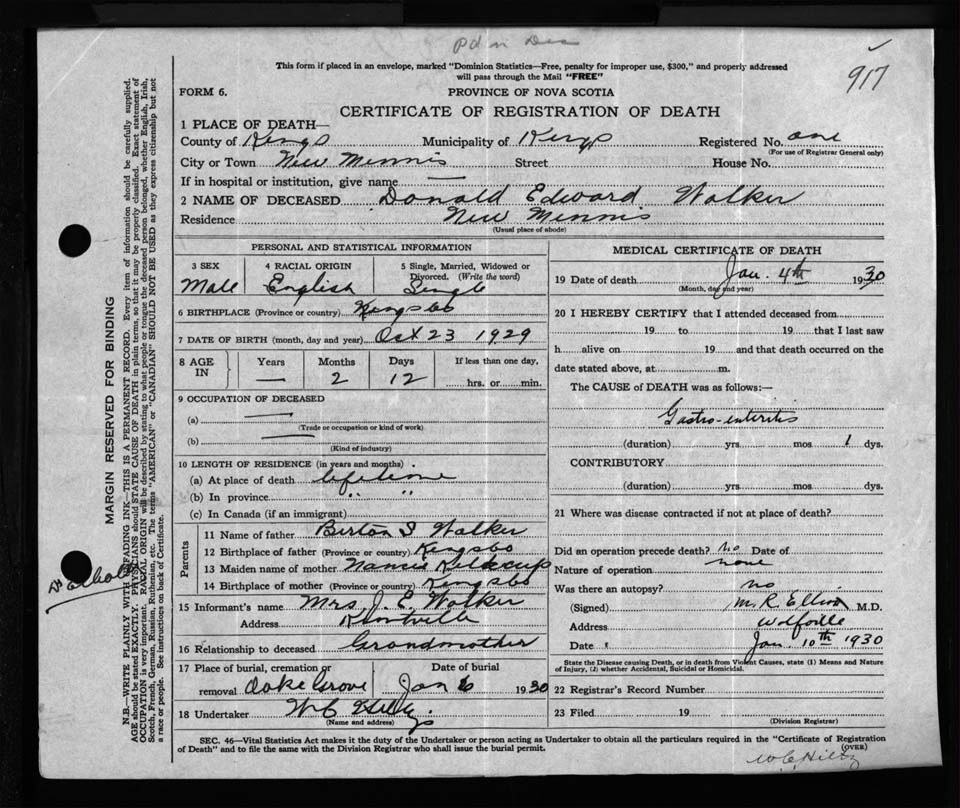 Pd in Dec
917
This form if placed in an envelope, marked "Dominion Statistics—Free, penalty for improper use, $300," and properly addressed
will pass through the Mail "FREE"
FORM 6.
PROVINCE OF NOVA SCOTIA
CERTIFICATE OF REGISTRATION OF DEATH
1 PLACE OF DEATH—
County of Kings Municipality of Kings Registered No. one
(For use of Registrar General only)
City or Town New Minnis Street House No.
If in hospital or institution, give name —
2 NAME OF DECEASED Donald Edward Walker
Residence New Minnis
(Usual place of abode)
PERSONAL AND STATISTICAL INFORMATION
3 SEX 4 RACIAL ORIGIN 5 Single, Married, Widowed or
Divorced. (Write the word)
Male English Single
6 BIRTHPLACE (Province or country) Kings Co
7 DATE OF BIRTH (month, day and year) Oct 23 1929
8 AGE IN Years Months Days If less than one day,
— 2 12 hrs. or min.
9 OCCUPATION OF DECEASED
(a) —
(Trade or occupation or kind of work)
(b) —
(Kind of industry)
10 LENGTH OF RESIDENCE (in years and months)
(a) At place of death lifetime
(b) In province " "
(c) In Canada (if an immigrant)
Parents
11 Name of father Burton Walker
12 Birthplace of father (Province or country) Kings Co
13 Maiden name of mother
14 Birthplace of mother (Province or country) Kings Co
15 Informant's name Mrs. J. E. Walker
Address Kentville
16 Relationship to deceased Grandmother
17 Place of burial, cremation or Date of burial
removal Oake Grove Jan 6 1930
18 Undertaker W C Hiltz
(Name and address)
MEDICAL CERTIFICATE OF DEATH
19 Date of death Jan. 4th 1930
(Month, day and year)
20 I HEREBY CERTIFY that I attended deceased from
19 to 19 that I last saw
h alive on 19 and that death occurred on the
date stated above, at m.
The CAUSE of DEATH was as follows:—
Gastro-interitis
(duration) yrs. mos 1 dys.
CONTRIBUTORY
(duration) yrs. mos dys.
21 Where was disease contracted if not at place of death?
Did an operation precede death? No Date of
Nature of operation none
Was there an autopsy? no
(Signed) M. R. Elliott M.D.
Address Wolfville
Date Jan. 10th 1930
State the Disease causing Death, or in death from Violent Causes, state (1) Means and Nature
of Injury, (2) whether Accidental, Suicidal or Homicidal.
22 Registrar's Record Number
23 Filed 19
(Division Registrar)
SEC. 46—Vital Statistics Act makes it the duty of the Undertaker or person acting as Undertaker to obtain all the particulars required in the "Certificate of Registration
of Death" and to file the same with the Division Registrar who shall issue the burial permit.
(OVER)
W C Hiltz
MARGIN RESERVED FOR BINDING
N.B.—WRITE PLAINLY WITH UNFADING INK—THIS IS A PERMANENT RECORD. Every item of information should be carefully supplied.
AGE should be stated EXACTLY. PHYSICIANS should STATE CAUSE OF DEATH in plain terms, so that it may be properly classified. Exact statement of
OCCUPATION is very important. RACIAL ORIGIN will be described by stating to what people or tongue the deceased person belonged, whether English, Irish,
Scotch, French, German, Russian, Ruthenian, etc. The terms "AMERICAN" or "CANADIAN" SHOULD NOT BE USED as they express citizenship but not
a race or people. See instructions on back of Certificate.